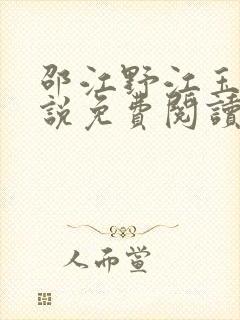 邵江野江玉
說免費閱讀
人而萱